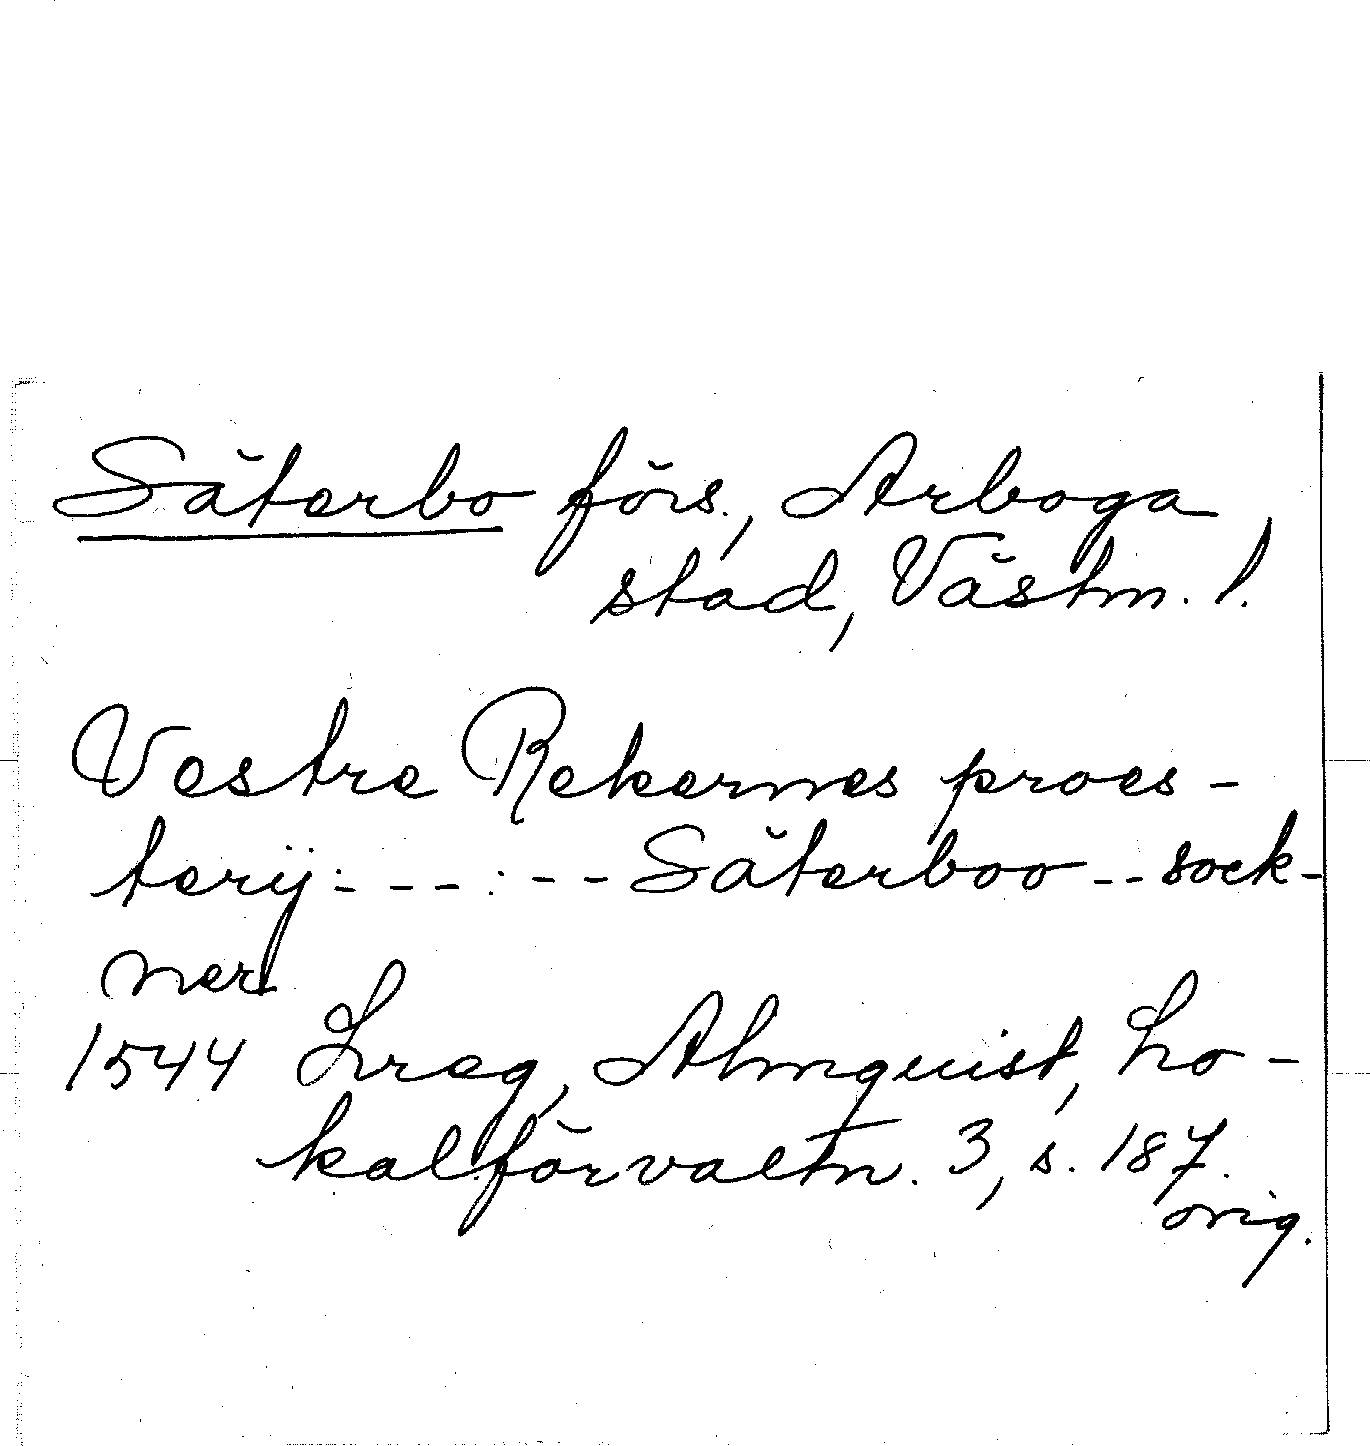 Säterbo förs., Arboga
stad, Västm. l.
Vestre Rekernes proes-
terij - - - : - - Säterboo - - sock-
ner
1544 Lreg, Almquist, Lo-
kalförvaltn. 3, s. 187.
orig.